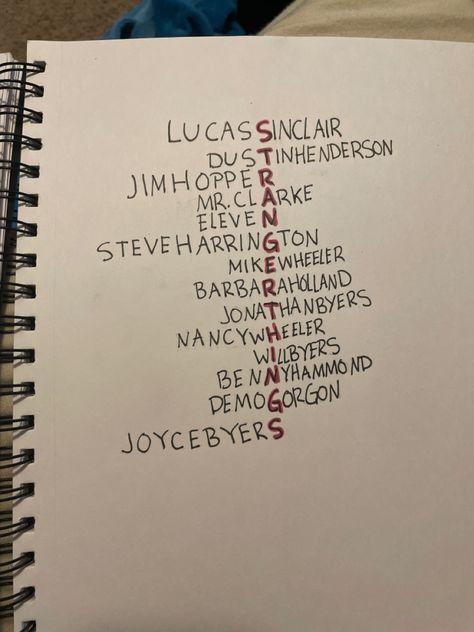 LUCASSINCLAIR
DUSTINHENDERSON
JIMHOPPER
MR.CLARKE
ELEVEN
STEVEHARRINGTON
MIKEWHEELER
BARBARAHOLLAND
JONATHANBYERS
NANCYWHEELER
WILLBYERS
BENNYHAMMOND
DEMOGORGON
JOYCEBYERS